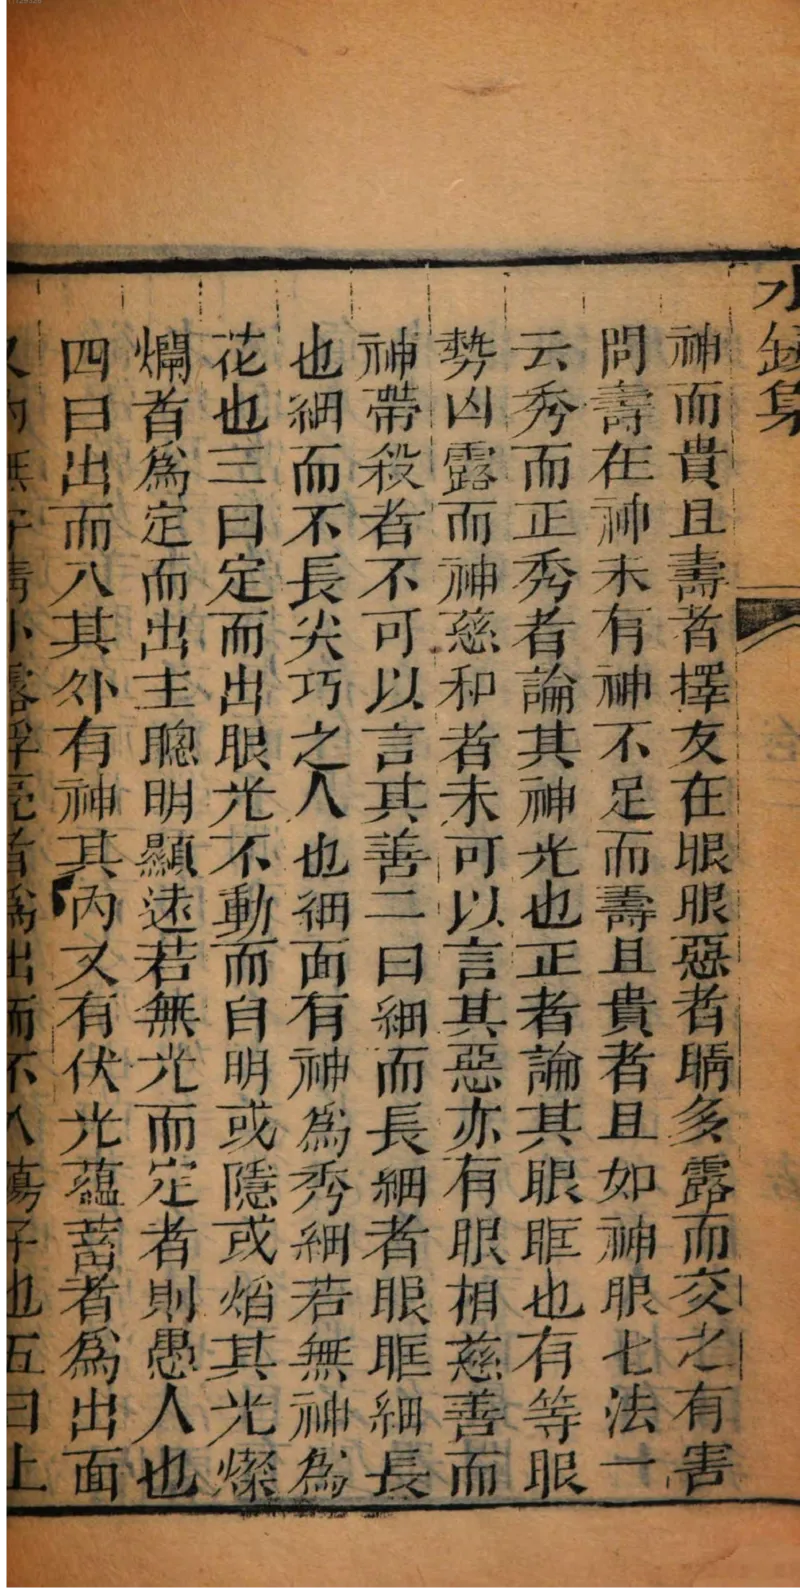 水鏡集
神而貴且壽者擇友在眼眼惡者睛多露而交之有害
問壽在神未有神不足而壽且貴者且如神眼七法一
云秀而正秀者論其神光也正者論其眼眶也有等眼
勢凶露而神慈和者未可以言其惡亦有眼相慈善而
神帶殺者不可以言其善二曰細而長細者眼眶細長
也細而不長尖巧之人也細面有神為秀細若無神為
花也三曰定而出眼光不動而自明或隱或焰其光燦
爛者為定而出主聰明顯遠若無光而定者則愚人也
四曰出而入其外有神其內又有伏光蘊蓄者為出面
外露浮亮者為出而不入蕩子也五曰上